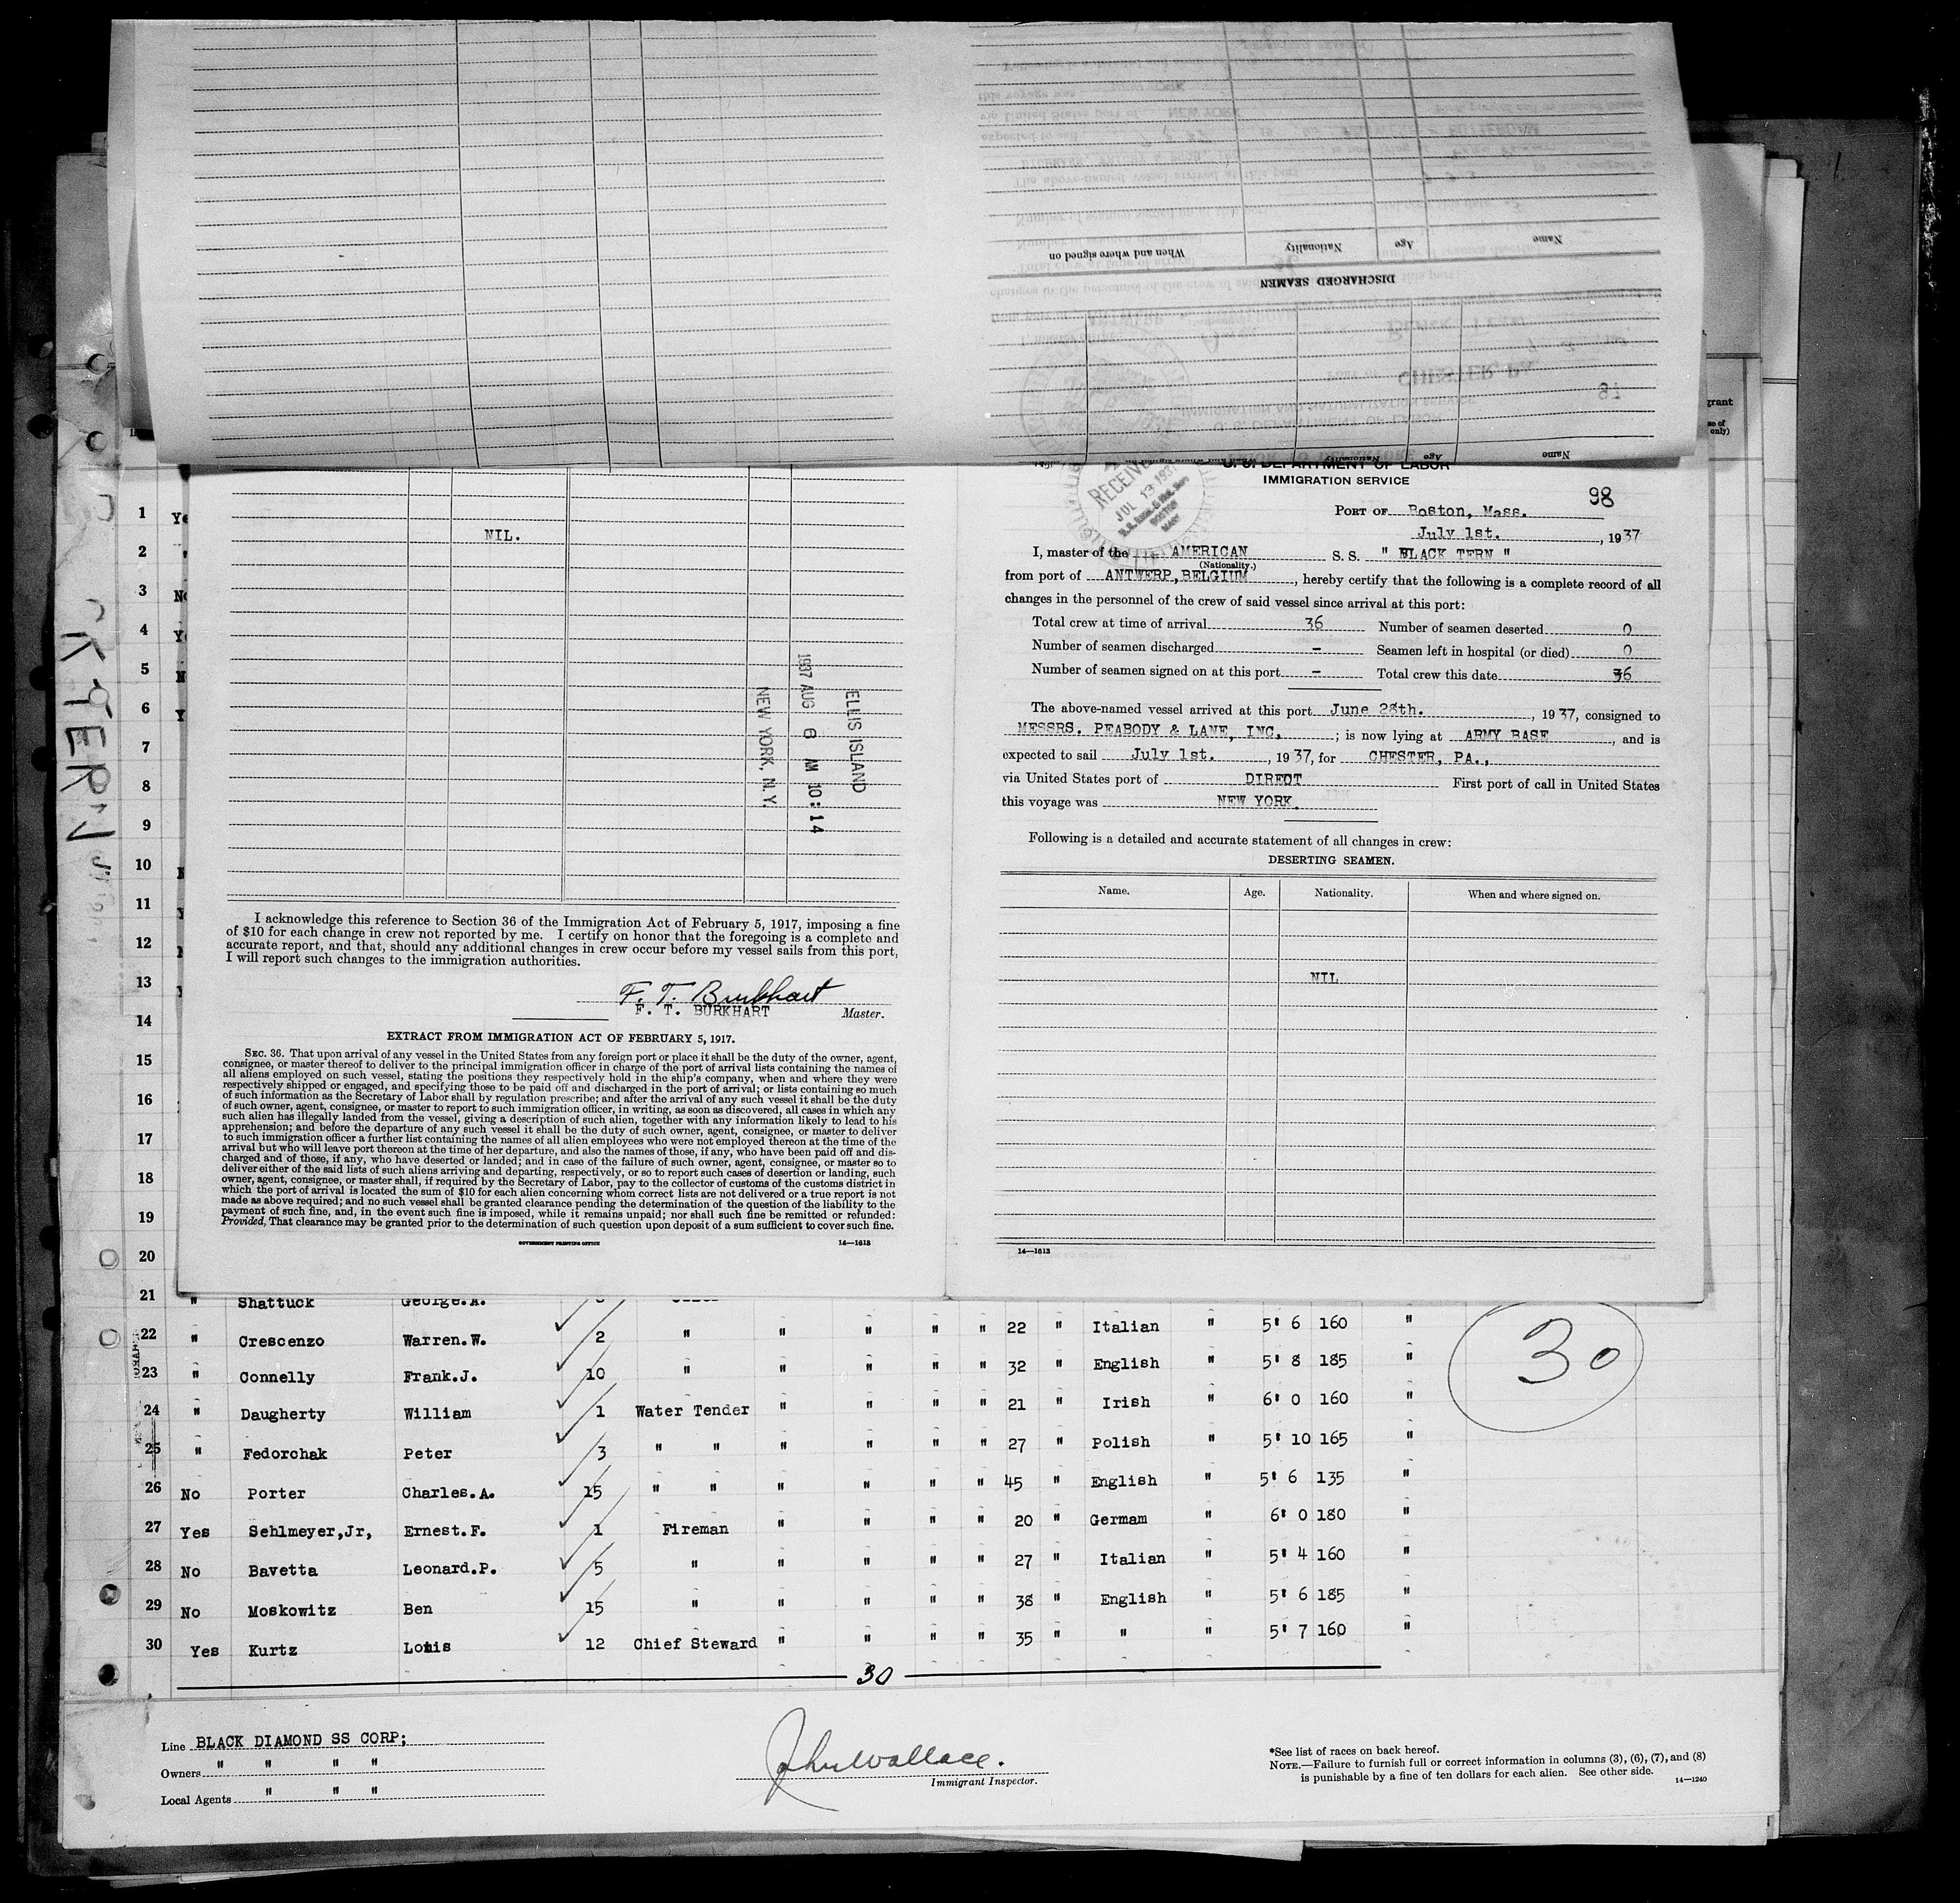 Name
Age
Nationality
When and where signed on
DISCHARGED SEAMEN
CHESTER, PA.
Name
Age
Nationality
grant
only)
CKTERN
NIL.
ELLIS ISLAND
1937 AUG 6 AM 10:14
NEW YORK, N.Y.
I acknowledge this reference to Section 36 of the Immigration Act of February 5, 1917, imposing a fine
of $10 for each change in crew not reported by me. I certify on honor that the foregoing is a complete and
accurate report, and that, should any additional changes in crew occur before my vessel sails from this port,
I will report such changes to the immigration authorities.
F. T. Burkhart
F. T. BURKHART Master.
EXTRACT FROM IMMIGRATION ACT OF FEBRUARY 5, 1917.
SEC. 36. That upon arrival of any vessel in the United States from any foreign port or place it shall be the duty of the owner, agent,
consignee, or master thereof to deliver to the principal immigration officer in charge of the port of arrival lists containing the names of
all aliens employed on such vessel, stating the positions they respectively hold in the ship's company, when and where they were
respectively shipped or engaged, and specifying those to be paid off and discharged in the port of arrival; or lists containing so much
of such information as the Secretary of Labor shall by regulation prescribe; and after the arrival of any such vessel it shall be the duty
of such owner, agent, consignee, or master to report to such immigration officer, in writing, as soon as discovered, all cases in which any
such alien has illegally landed from the vessel, giving a description of such alien, together with any information likely to lead to his
apprehension; and before the departure of any such vessel it shall be the duty of such owner, agent, consignee, or master to deliver
to such immigration officer a further list containing the names of all alien employees who were not employed thereon at the time of the
arrival but who will leave port thereon at the time of her departure, and also the names of those, if any, who have been paid off and dis-
charged and of those, if any, who have deserted or landed; and in case of the failure of such owner, agent, consignee, or master so to
deliver either of the said lists of such aliens arriving and departing, respectively, or so to report such cases of desertion or landing, such
owner, agent, consignee, or master shall, if required by the Secretary of Labor, pay to the collector of customs of the customs district in
which the port of arrival is located the sum of $10 for each alien concerning whom correct lists are not delivered or a true report is not
made as above required; and no such vessel shall be granted clearance pending the determination of the question of the liability to the
payment of such fine, and, in the event such fine is imposed, while it remains unpaid; nor shall such fine be remitted or refunded:
Provided, That clearance may be granted prior to the determination of such question upon deposit of a sum sufficient to cover such fine.
GOVERNMENT PRINTING OFFICE 14—1613
U. S. DEPARTMENT OF LABOR
IMMIGRATION SERVICE
RECEIVED
JUL 13 1937
BOSTON
MASS
98
PORT OF Boston, Mass.
July 1st., 1937
I, master of the AMERICAN S. S. " BLACK TERN "
(Nationality.)
from port of ANTWERP, BELGIUM, hereby certify that the following is a complete record of all
changes in the personnel of the crew of said vessel since arrival at this port:
Total crew at time of arrival 36 Number of seamen deserted 0
Number of seamen discharged - Seamen left in hospital (or died) 0
Number of seamen signed on at this port - Total crew this date 36
The above-named vessel arrived at this port June 28th., 1937, consigned to
MESSRS. PEABODY & LANE, INC.; is now lying at ARMY BASE, and is
expected to sail July 1st., 1937, for CHESTER, PA.,
via United States port of DIRECT First port of call in United States
this voyage was NEW YORK.
Following is a detailed and accurate statement of all changes in crew:
DESERTING SEAMEN.
Name. Age. Nationality. When and where signed on.
NIL
14—1613
1
2
3
4
5
6
7
8
9
10
11
12
13
14
15
16
17
18
19
20
21 " Shattuck George.A.
22 " Crescenzo Warren.W. 2 " " " " " 22 " Italian " 5' 6 160 "
23 " Connelly Frank.J. 10 " " " " " 32 " English " 5' 8 185 "
24 " Daugherty William 1 Water Tender " " " " 21 " Irish " 6' 0 160 "
25 " Fedorchak Peter 3 " " " " " " 27 " Polish " 5' 10 165 "
26 No Porter Charles.A. 15 " " " " " " 45 " English " 5' 6 135 "
27 Yes Sehlmeyer,Jr, Ernest.F. 1 Fireman " " " " 20 " Germam " 6' 0 180 "
28 No Bavetta Leonard.P. 5 " " " " " 27 " Italian " 5' 4 160 "
29 No Moskowitz Ben 15 " " " " " 38 " English " 5' 6 185 "
30 Yes Kurtz Louis 12 Chief Steward " " " " 35 " " " 5' 7 160 "
30
30
Line BLACK DIAMOND SS CORP;
Owners " " " "
Local Agents " " "
John Wallace.
Immigrant Inspector.
*See list of races on back hereof.
NOTE.—Failure to furnish full or correct information in columns (3), (6), (7), and (8)
is punishable by a fine of ten dollars for each alien. See other side.
14—1240